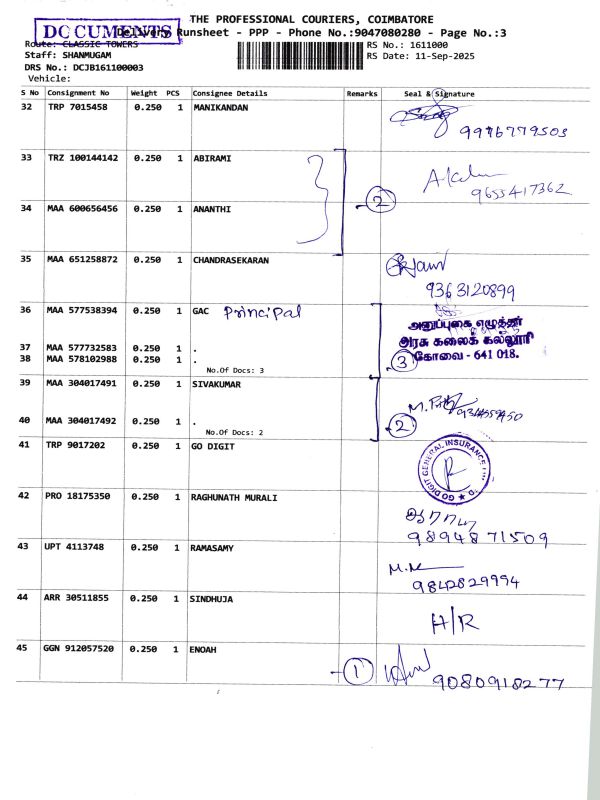 THE PROFESSIONAL COURIERS, COIMBATORE
DOCUMENTS
Delivery Runsheet - PPP - Phone No.:9047080280 - Page No.:3
Route: CLASSIC TOWERS
RS No.: 1611000
Staff: SHANMUGAM
RS Date: 11-Sep-2025
DRS No.: DCJB161100003
Vehicle:
S No Consignment No Weight PCS Consignee Details Remarks Seal & Signature
32 TRP 7015458 0.250 1 MANIKANDAN
9976779503
33 TRZ 100144142 0.250 1 ABIRAMI
9655417362
2
34 MAA 600656456 0.250 1 ANANTHI
35 MAA 651258872 0.250 1 CHANDRASEKARAN
9363120899
36 MAA 577538394 0.250 1 GAC Principal
அனுப்புகை எழுத்தர்
அரசு கலைக் கல்லூரி
கோவை - 641 018.
37 MAA 577732583 0.250 1 .
38 MAA 578102988 0.250 1 .
3
No.Of Docs: 3
39 MAA 304017491 0.250 1 SIVAKUMAR
40 MAA 304017492 0.250 1 .
2
No.Of Docs: 2
41 TRP 9017202 0.250 1 GO DIGIT
GO DIGIT GENERAL INSURANCE
42 PRO 18175350 0.250 1 RAGHUNATH MURALI
9894871509
43 UPT 4113748 0.250 1 RAMASAMY
9842829994
44 ARR 30511855 0.250 1 SINDHUJA
H/R
45 GGN 912057520 0.250 1 ENOAH
1
9080918277